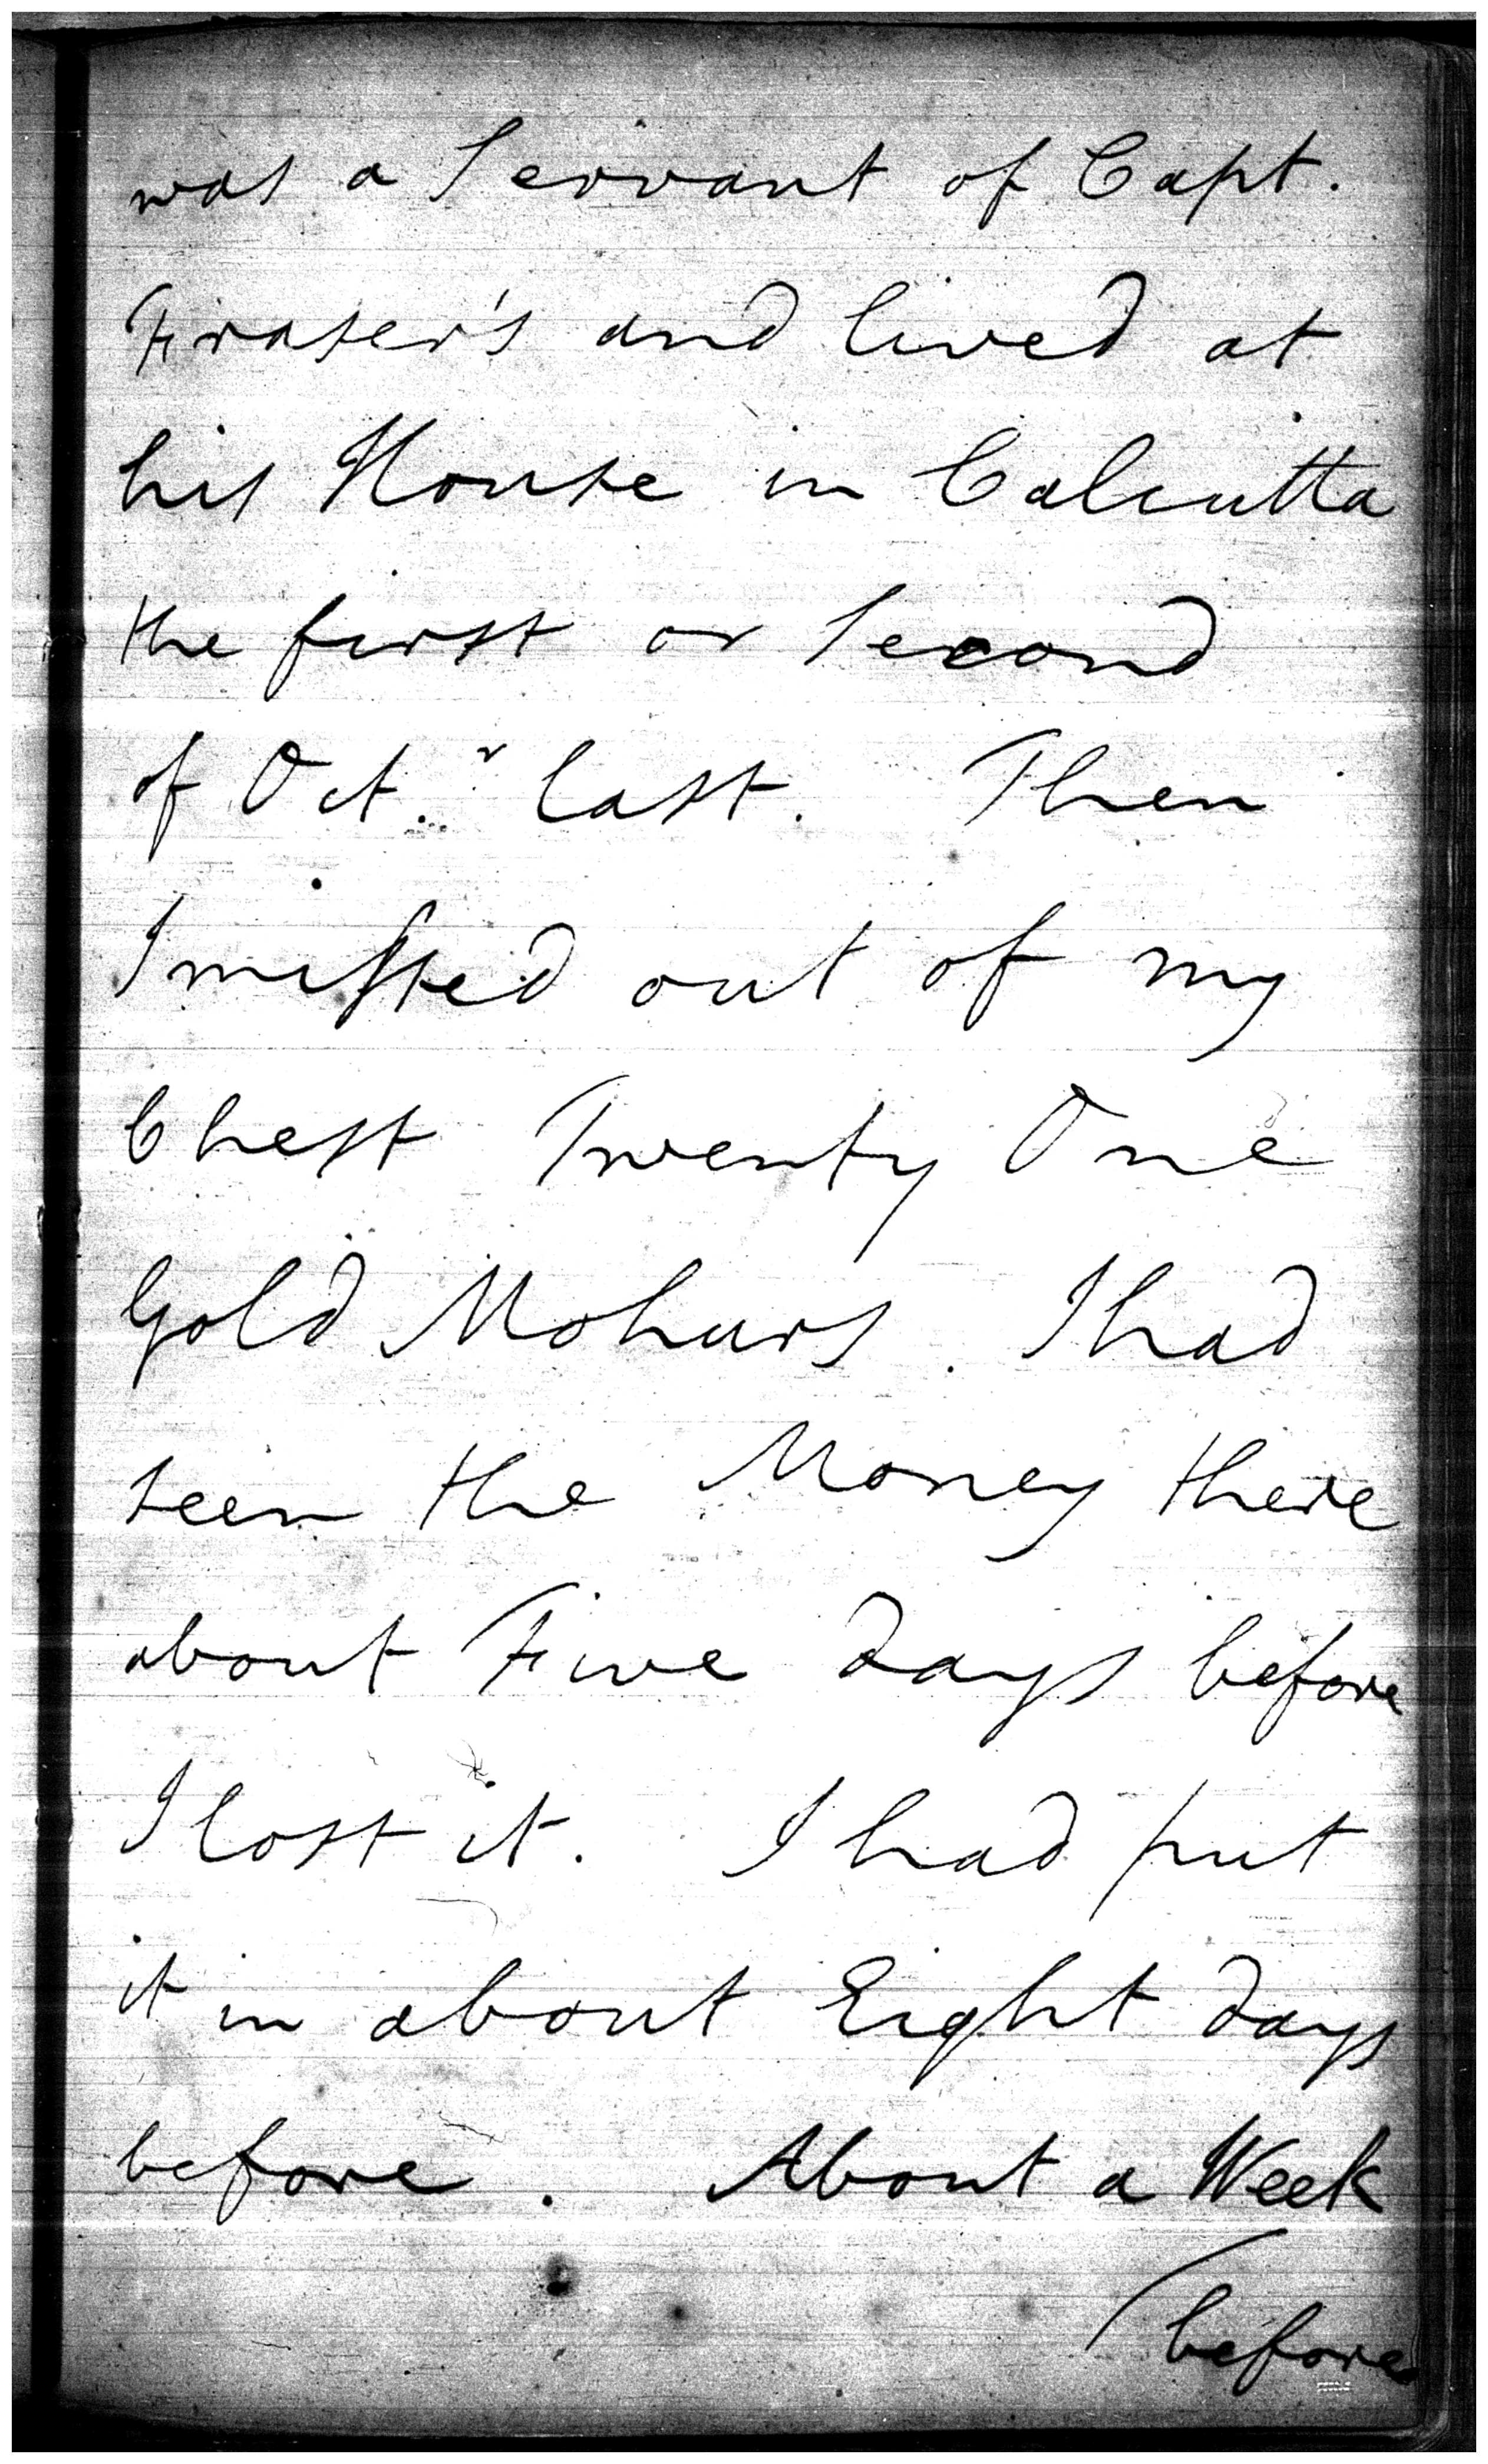 was a Servant of Capt.
Fraser's and lived at
his House in Calcutta
the first or Second
of Oct.r last. Then
I missed out of my
Chest Twenty One
Gold Mohurs. I had
seen the Money there
about Five days before
I lost it. I had put
it in about Eight days
before. About a Week
before